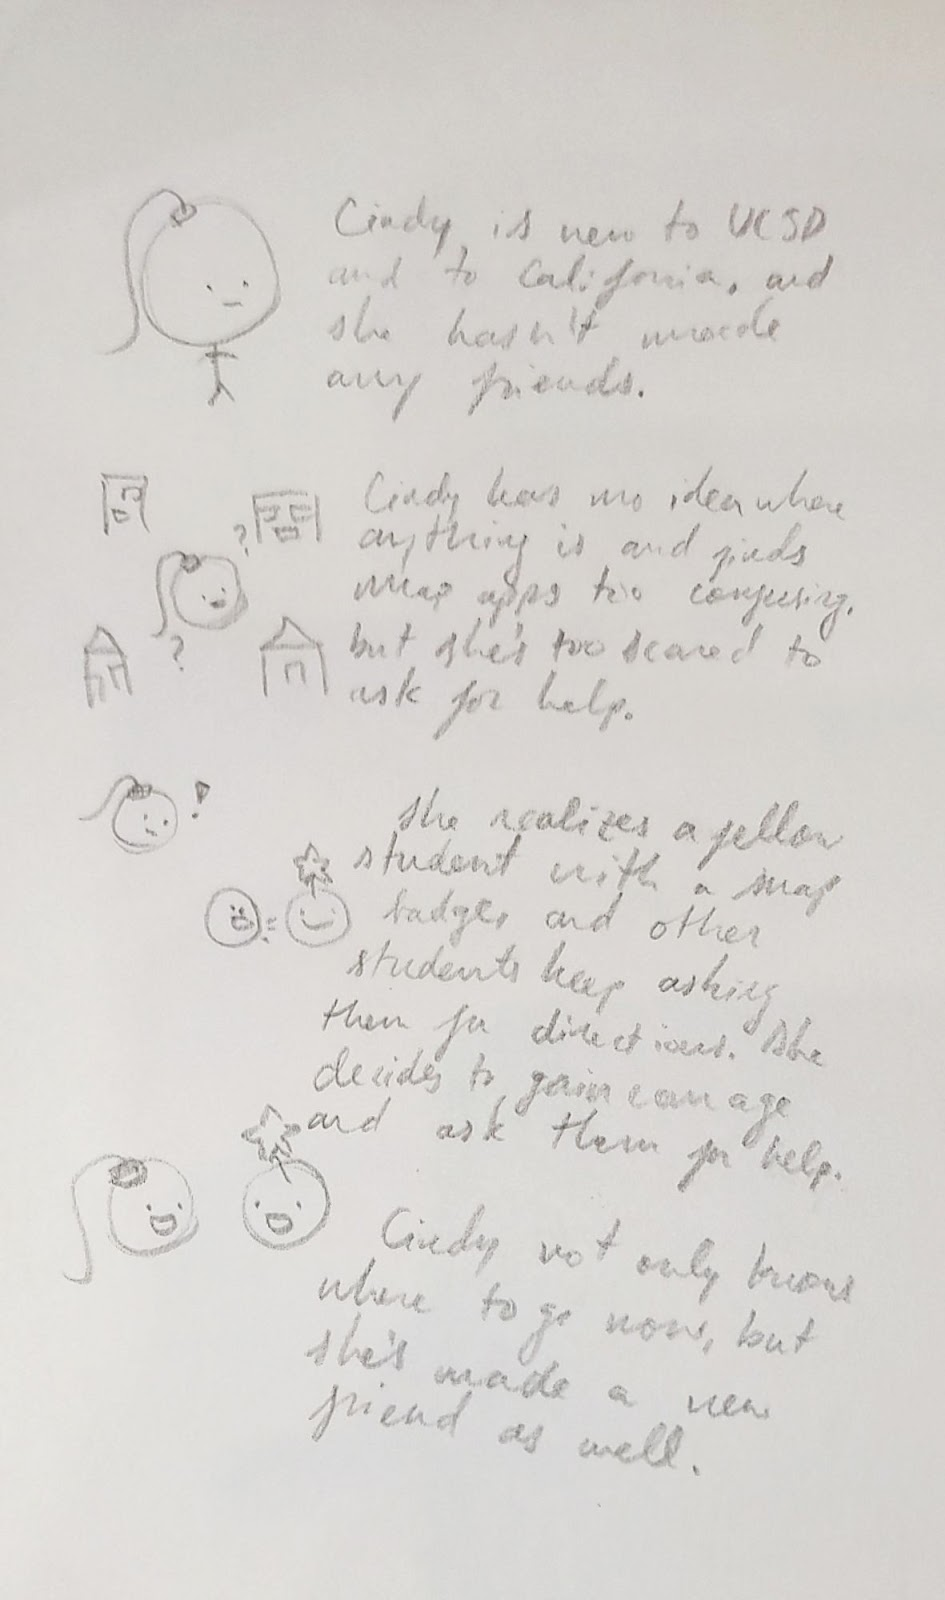 Cindy is new to UCSD
and to California, and
she hasn't made
any friends.
?
?
Cindy has no idea where
anything is and finds
map apps too confusing,
but she's too scared to
ask for help.
!
She realizes a fellow
student with a map
badge, and other
students keep asking
them for directions. She
decides to gain courage
and ask them for help.
Cindy not only knows
where to go now, but
she's made a new
friend as well.